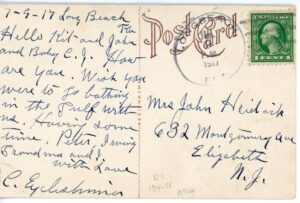 1-9-17 Long Beach
Fla
Hello Kit and John
and Baby C. J. How
are you. Wish you
were to go bathing
in the Gulf with
us. Having some
time. Peter, Irving
Grandma and I
with Love
Post Card
1917
FLA
ONE CENT
Mrs John
632 Montgomery Ave
Elizabeth
N. J.